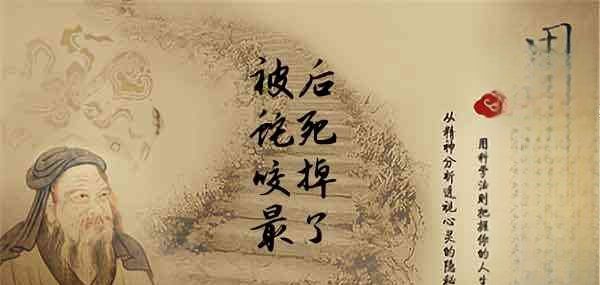 被诧咬最
后死掉了
用科学法则把握你的人生
从精神分析透视心灵的隐秘